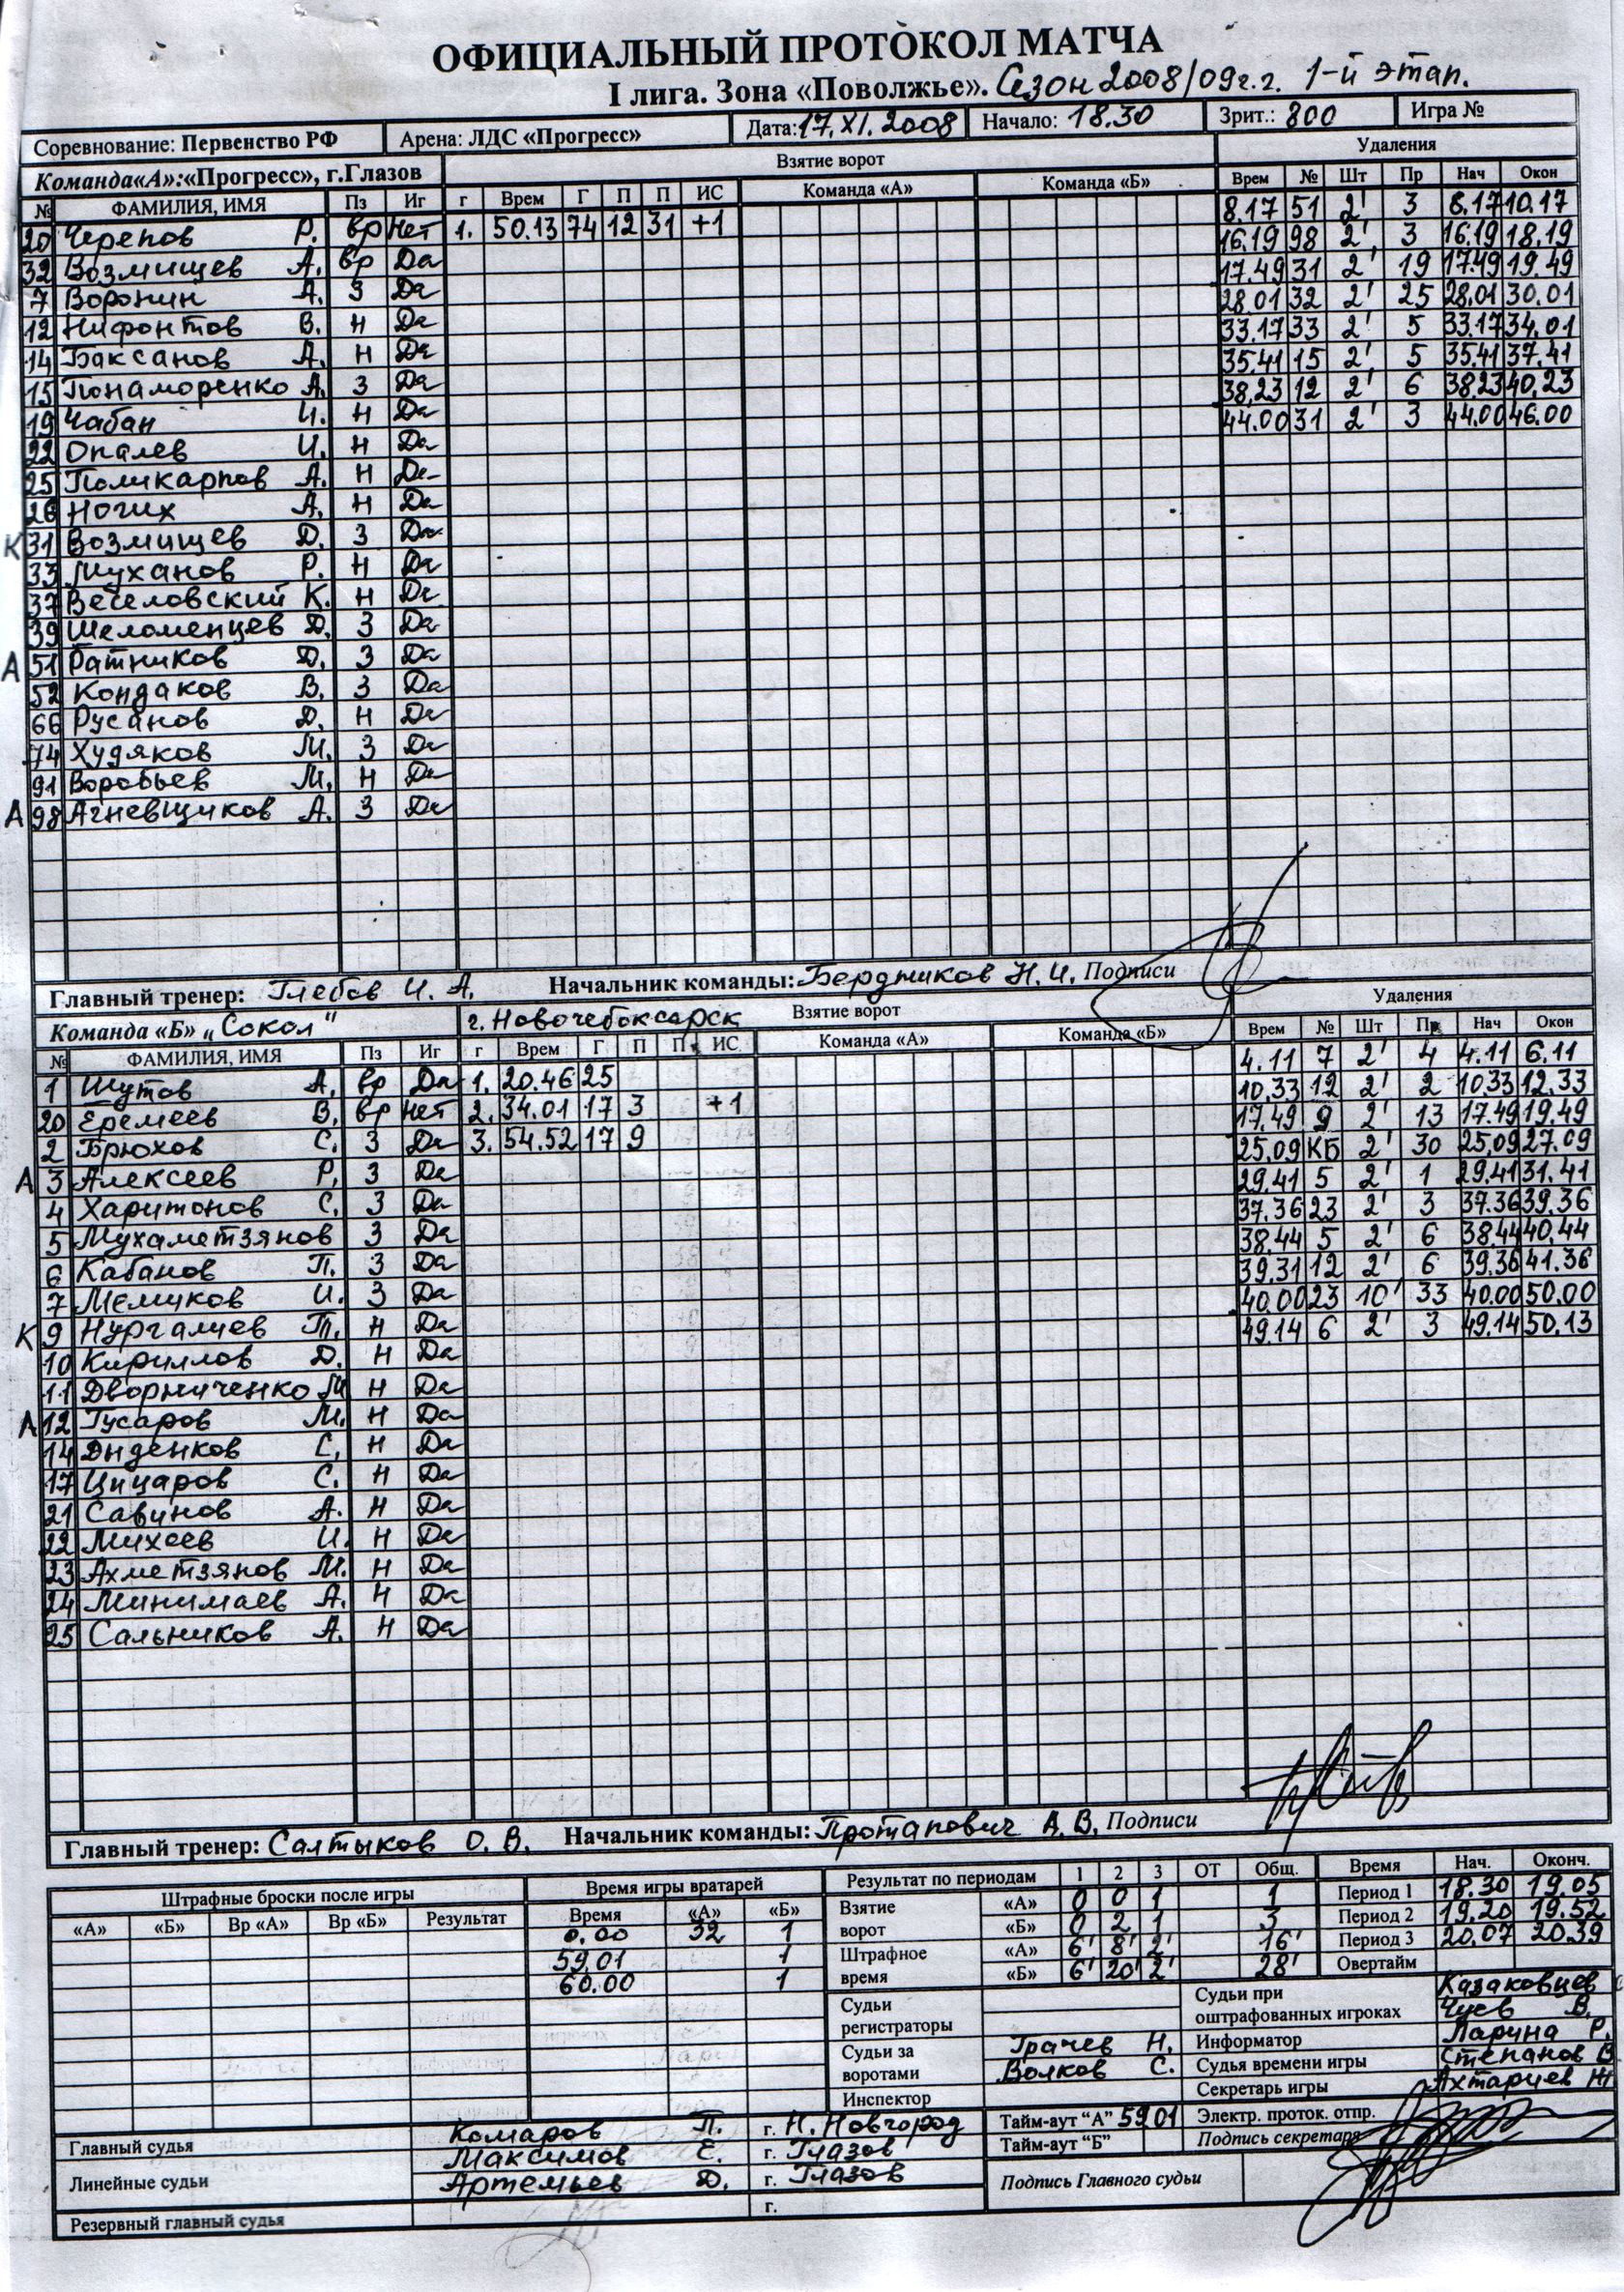 ОФИЦИАЛЬНЫЙ ПРОТОКОЛ МАТЧА
I лига. Зона «Поволжье». Сезон 2008/09г.г. 1-й этап.
Соревнование: Первенство РФ Арена: ЛДС «Прогресс» Дата: 17.XI.2008 Начало: 18.30 Зрит.: 800 Игра №
Команда«А»:«Прогресс», г.Глазов Взятие ворот Удаления
№ ФАМИЛИЯ, ИМЯ Пз Иг г Врем Г П П ИС Команда «А» Команда «Б» Врем № Шт Пр Нач Окон
20 Черепов Р. вр Нет 1. 50.13 74 12 31 +1 8.17 51 2' 3 8.17 10.17
32 Возмищев А. вр Да 16.19 98 2' 3 16.19 18.19
7 Воронин А. З Да 17.49 31 2' 19 17.49 19.49
12 Нифонтов В. Н Да 28.01 32 2' 25 28.01 30.01
14 Баксанов А. Н Да 33.17 33 2' 5 33.17 34.01
15 Понаморенко А. З Да 35.41 15 2' 5 35.41 37.41
19 Чабан И. Н Да 38.23 12 2' 6 38.23 40.23
22 Опалев И. Н Да 44.00 31 2' 3 44.00 46.00
25 Поликарпов А. Н Да
26 Ногих А. Н Да
К 31 Возмищев Д. З Да
33 Муханов Р. Н Да
37 Веселовский К. Н Да
39 Шеломенцев Д. З Да
А 51 Ратников Д. З Да
52 Кондаков В. З Да
66 Русанов Д. Н Да
74 Худяков М. З Да
91 Воробьев М. Н Да
А 98 Агневщиков А. З Да
Главный тренер: Глебов И. А. Начальник команды: Бердников Н.И. Подписи
Команда «Б» „Сокол" г. Новочебоксарск Взятие ворот Удаления
№ ФАМИЛИЯ, ИМЯ Пз Иг г Врем Г П П ИС Команда «А» Команда «Б» Врем № Шт Пр Нач Окон
1 Шутов А. вр Да 1. 20.46 25 4.11 7 2' 4 4.11 6.11
20 Еремеев В. вр Нет 2. 34.01 17 3 +1 10.33 12 2' 2 10.33 12.33
2 Брюхов С. З Да 3. 54.52 17 9 17.49 9 2' 13 17.49 19.49
А 3 Алексеев Р. З Да 25.09 КБ 2' 30 25.09 27.09
4 Харитонов С. З Да 29.41 5 2' 1 29.41 31.41
5 Мухаметзянов З Да 37.36 23 2' 3 37.36 39.36
6 Кабанов П. З Да 38.44 5 2' 6 38.44 40.44
7 Мемуков И. З Да 39.31 12 2' 6 39.36 41.36
К 9 Нургалиев Т. Н Да 40.00 23 10' 33 40.00 50.00
10 Кириллов Д. Н Да 49.14 6 2' 3 49.14 50.13
11 Дворниченко М Н Да
А 12 Гусаров М. Н Да
14 Диденков С. Н Да
17 Цицаров С. Н Да
21 Савинов А. Н Да
22 Михеев И. Н Да
23 Ахметзянов М. Н Да
24 Минимаев А. Н Да
25 Сальников А. Н Да
Главный тренер: Салтыков О. В. Начальник команды: Протапович А.В. Подписи
Штрафные броски после игры Время игры вратарей Результат по периодам 1 2 3 ОТ Общ. Время Нач. Оконч.
«А» «Б» Вр «А» Вр «Б» Результат Время «А» «Б» Взятие ворот «А» 0 0 1 1 Период 1 18.30 19.05
0.00 32 1 «Б» 0 2 1 3 Период 2 19.20 19.52
59.01 1 Штрафное время «А» 6' 8' 2' 16' Период 3 20.07 20.39
60.00 1 «Б» 6' 20' 2' 28' Овертайм
Судьи регистраторы Судьи при оштрафованных игроках Казаковцев
Чуев В.
Судьи за воротами Грачев Н. Информатор Ларина Р.
Волков С. Судья времени игры Степанов В
Инспектор Секретарь игры Ахтариев Ж
Главный судья Комаров П. г. Н.Новгород Тайм-аут "А" 59.01 Электр. проток. отпр.
Линейные судьи Максимов Е. г. Глазов Тайм-аут "Б" Подпись секретаря
Артемьев Д. г. Глазов Подпись Главного судьи
Резервный главный судья г.